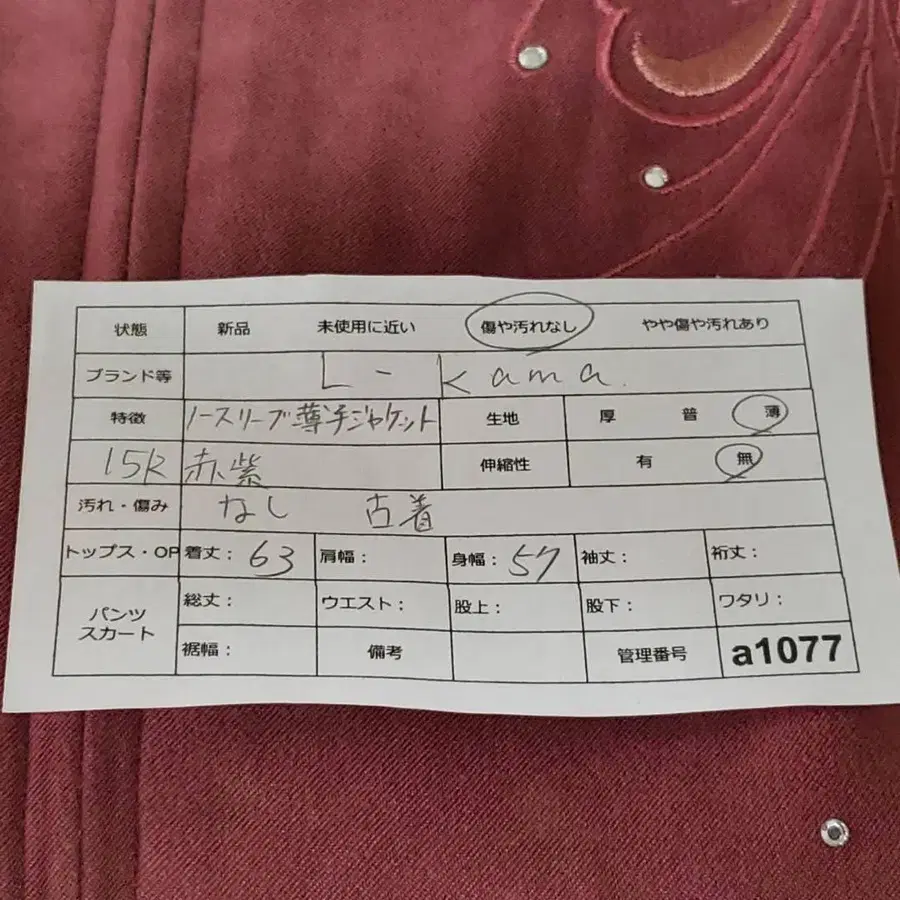 状態 新品 未使用に近い 傷や汚れなし やや傷や汚れあり
ブランド等 L-Kama.
特徴 ノースリーブ薄手ジャケット 生地 厚 普 薄
15R 赤紫 伸縮性 有 無
汚れ・傷み なし 古着
トップス・OP 着丈: 63 肩幅: 身幅: 57 袖丈: 裄丈:
パンツ スカート 総丈: ウエスト: 股上: 股下: ワタリ:
裾幅: 備考 管理番号 a1077